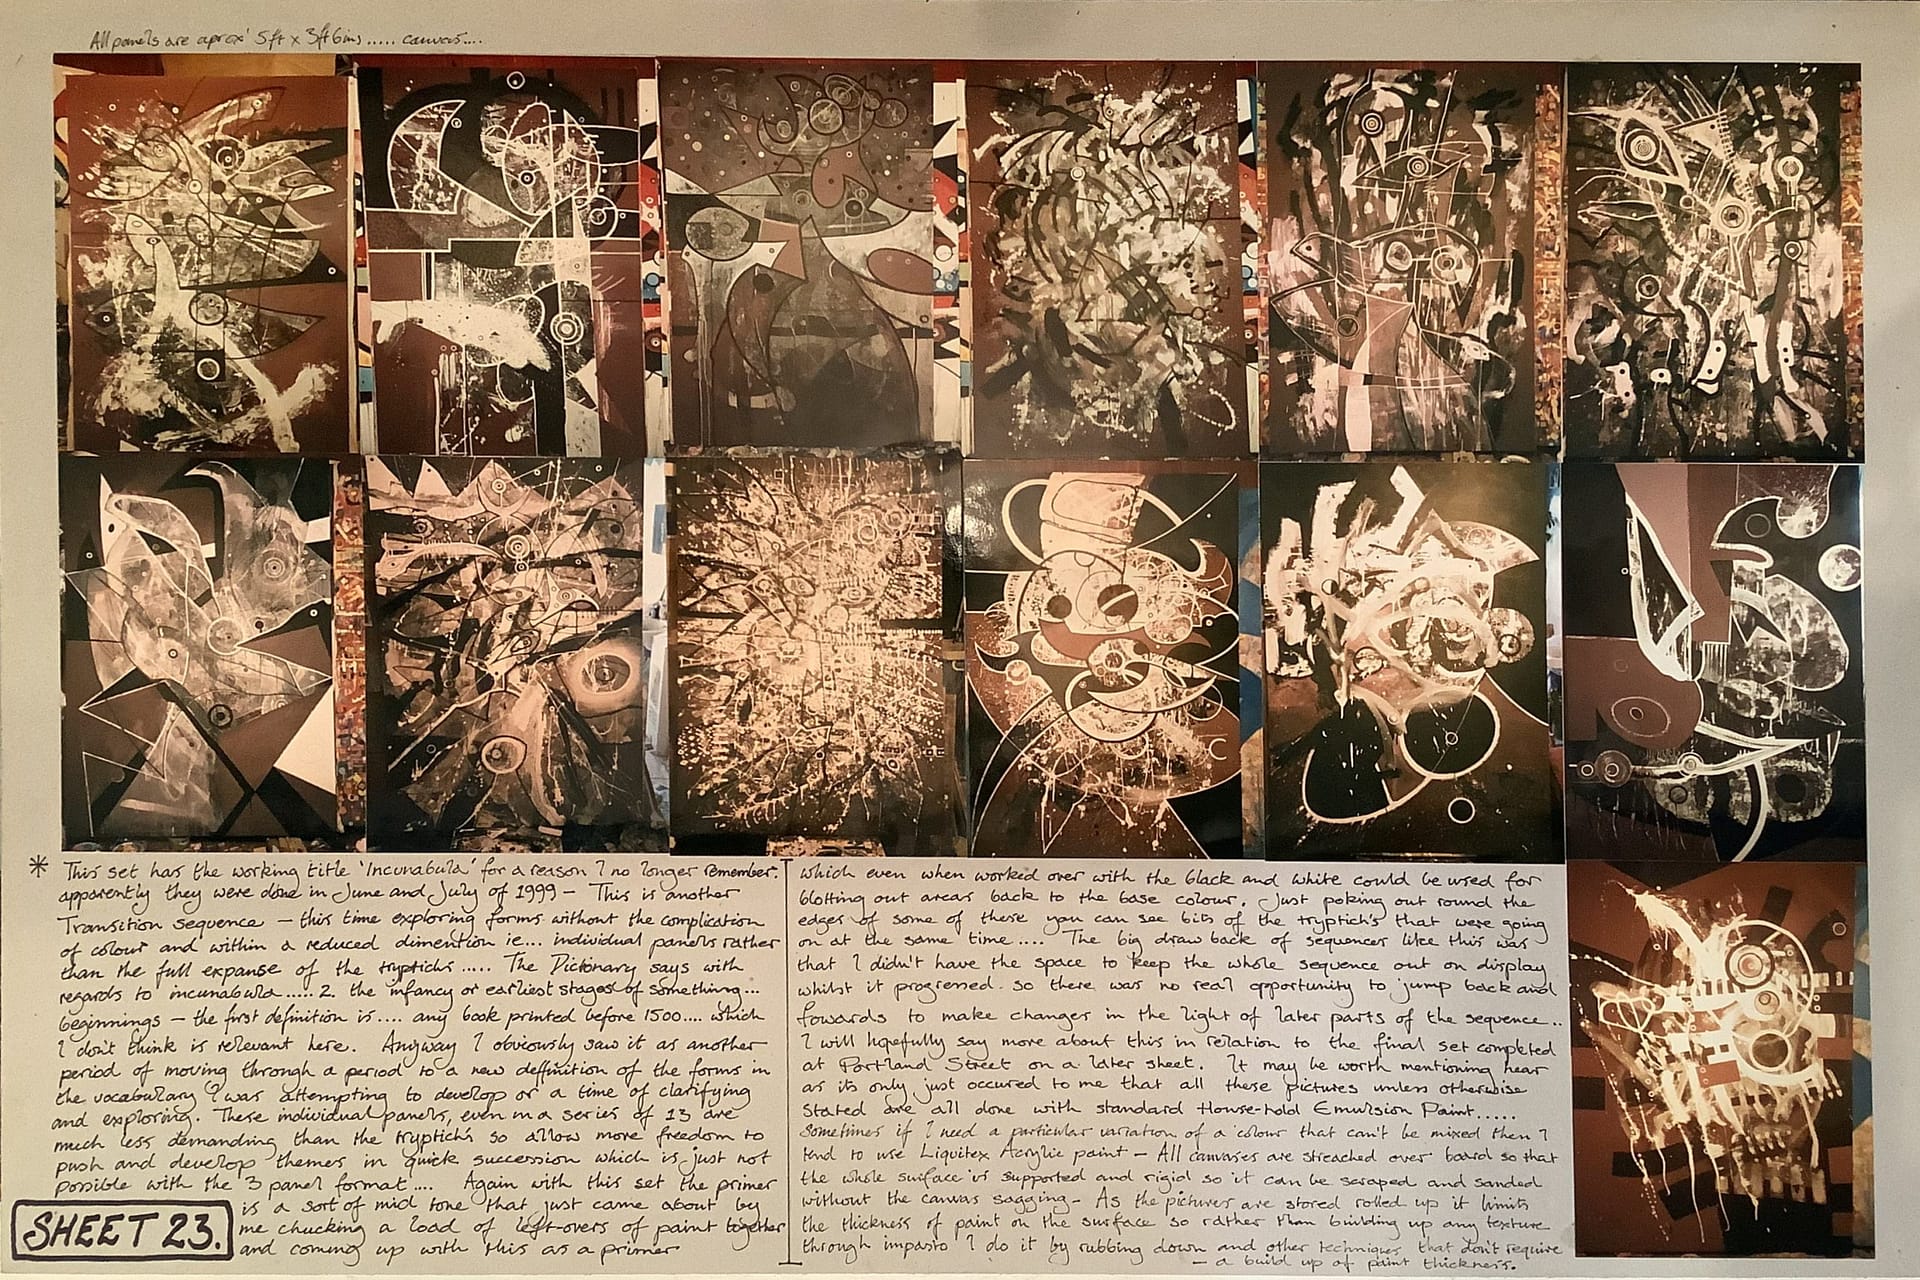 All panels are aprox' 5ft x 3ft 6ins ..... canvas....
* This set has the working title 'Incunabula' for a reason I no longer remember.
apparently they were done in June and July of 1999 - This is another
Transition sequence - this time exploring forms without the complication
of colour and within a reduced dimention ie... individual panels rather
than the full expanse of the tryptichs ..... The Dictionary says with
regards to incunabula ..... 2. the infancy or earliest stages of something...
beginnings - the first definition is .... any book printed before 1500.... which
I don't think is relevant here. Anyway I obviously saw it as another
period of moving through a period to a new deffinition of the forms in
the vocabulary I was attempting to develop or a time of clarifying
and exploring. These individual panels, even in a series of 13 are
much less demanding than the tryptich's so allow more freedom to
push and develop themes in quick succession which is just not
possible with the '3 panel format' .... Again with this set the primer
is a sort of mid tone that just came about by
me chucking a load of left-overs of paint together
and coming up with this as a primer
SHEET 23.
which even when worked over with the black and white could be used for
blotting out areas back to the base colour. Just poking out round the
edges of some of these you can see bits of the tryptich's that were going
on at the same time .... The big draw back of sequences like this was
that I didn't have the space to keep the whole sequence out on display
whilst it progressed. so there was no real opportunity to jump back and
fowards to make changes in the light of later parts of the sequence..
I will hopefully say more about this in relation to the final set completed
at Portland Street on a later sheet. It may be worth mentioning hear
as its only just occured to me that all these pictures unless otherwise
stated are all done with standard House-hold Emulsion Paint.....
Sometimes if I need a particular variation of a colour that can't be mixed then I
tend to use Liquitex Acrylic paint - All canvases are streached over board so that
the whole surface is supported and rigid so it can be scraped and sanded
without the canvas sagging - As the pictures are stored rolled up it limits
the thickness of paint on the surface so rather than building up any texture
through impasto I do it by rubbing down and other techniques that don't require
- a build up of paint thickness.